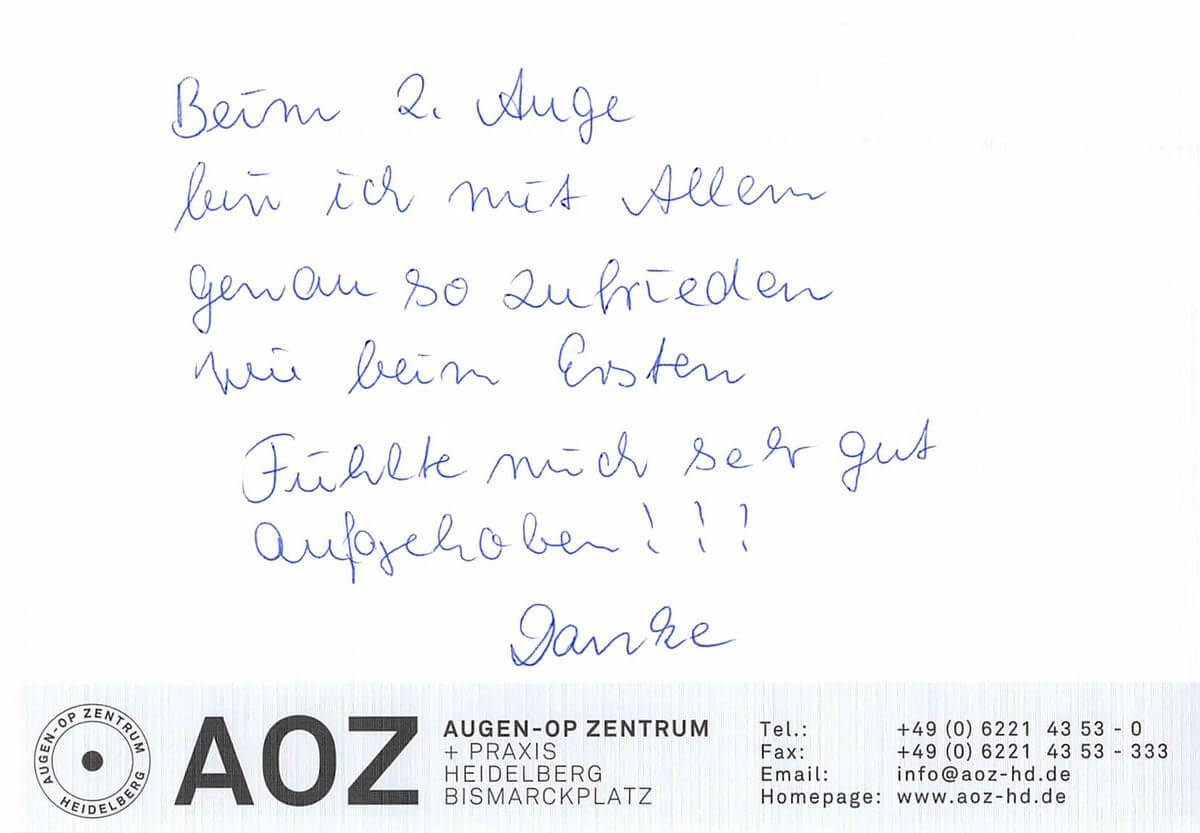 Beim 2. Auge
bin ich mit Allem
genau so zufrieden
wie beim Ersten
Fühlte mich sehr gut
aufgehoben!!!
Danke
AUGEN-OP ZENTRUM
HEIDELBERG
AOZ
AUGEN-OP ZENTRUM
+ PRAXIS
HEIDELBERG
BISMARCKPLATZ
Tel.: +49 (0) 6221 43 53 - 0
Fax: +49 (0) 6221 43 53 - 333
Email: info@aoz-hd.de
Homepage: www.aoz-hd.de